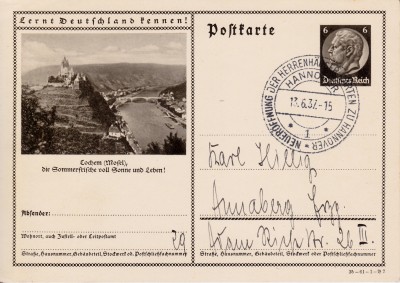 Lernt Deutschland kennen!
Postkarte
6 6
Deutsches Reich
NEUERÖFFNUNG DER HERRENHÄUSER GÄRTEN ZU HANNOVER
HANNOVER
13.6.37.-15
1
Cochem (Mosel),
die Sommerfrische voll Sonne und Leben!
Absender:
Wohnort, auch Zustell- oder Leitpostamt
29
Straße, Hausnummer, Gebäudeteil, Stockwerk od. Postschließfachnummer
Karl
Annaberg Erzg.
26 II.
Straße, Hausnummer, Gebäudeteil, Stockwerk od. Postschließfachnummer